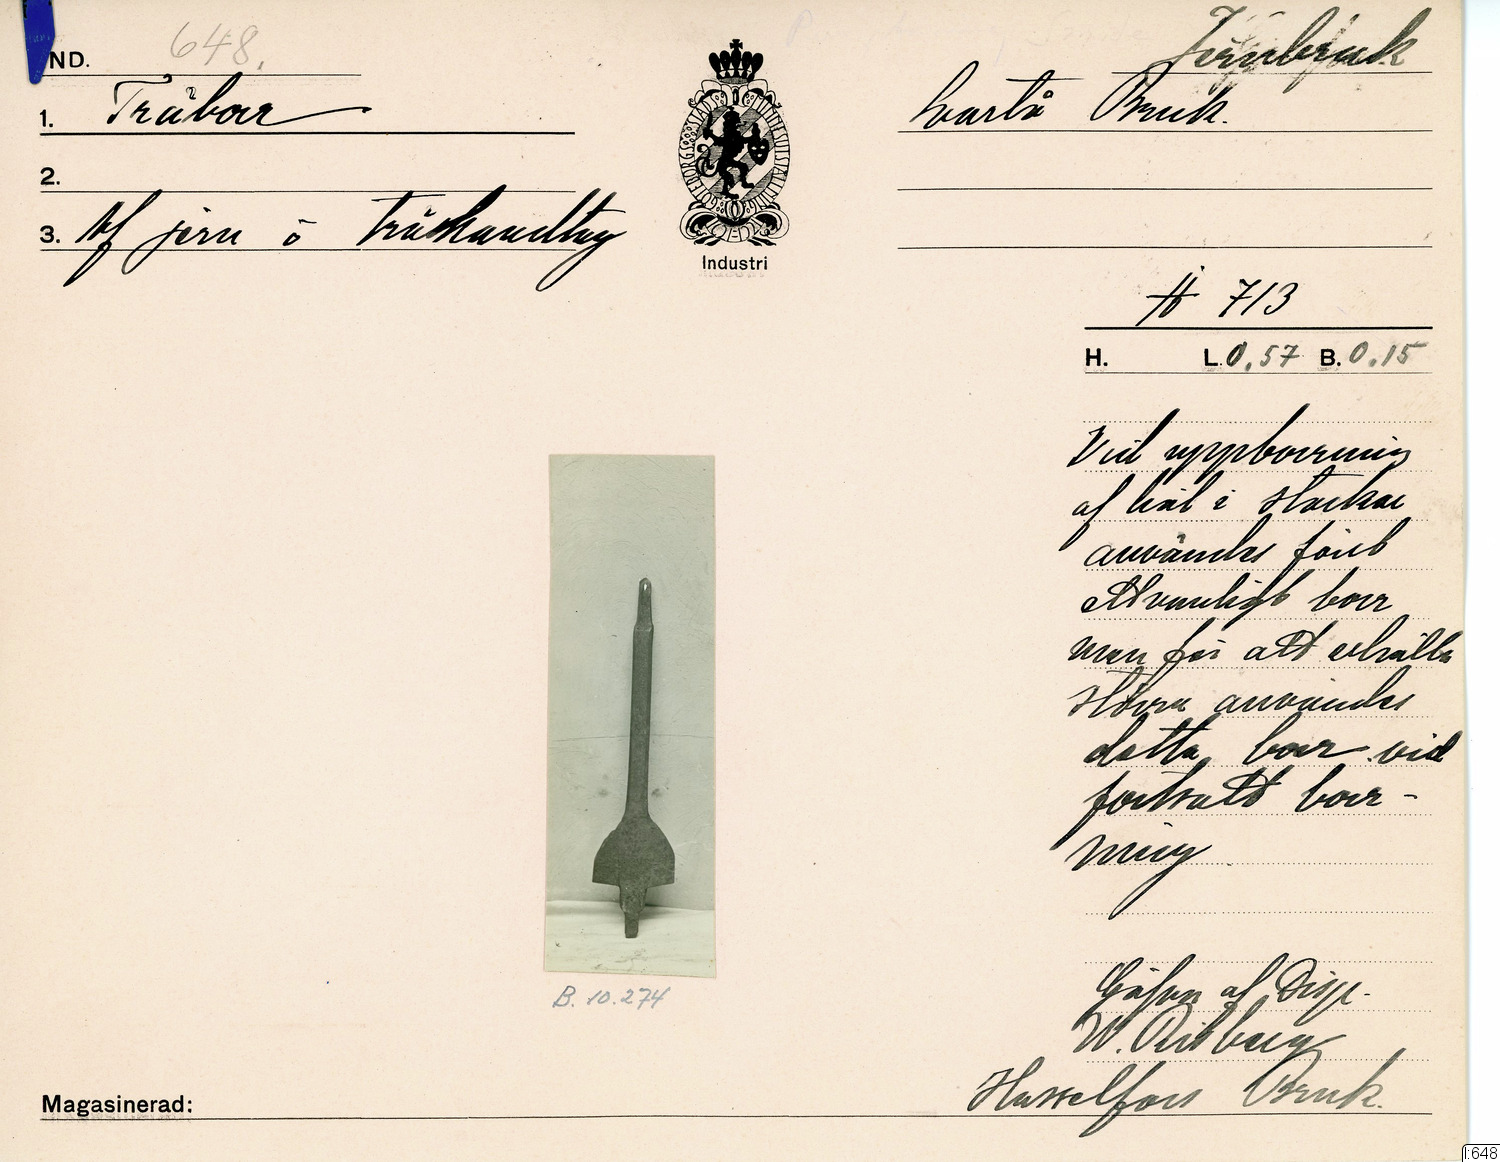 IND. 648.
Järnbruk
1. Träborr
Svartå Bruk.
2.
3. Af järn o trähandtag
GÖTEBORGS STADS JUBILEUMSUTSTÄLLNING
Industri
# 713
H. L. 0,57 B. 0,15
Vid uppborrning
af hål i stockar
användes först
ett vanligt borr
men för att erhålla
större användes
detta borr vid
fortsatt borr-
ning
B. 10.274
Gåfva af Disp.
W. Risberg
Hasselfors Bruk.
Magasinerad:
I:648